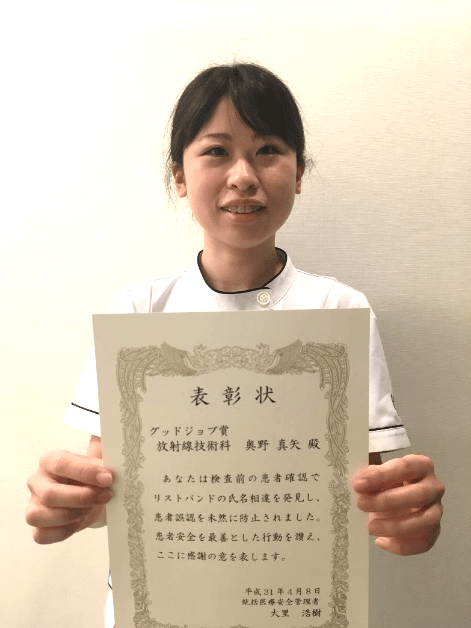 表彰状
グッドジョブ賞
放射線技術科 奥野 真矢 殿
あなたは検査前の患者確認で
リストバンドの氏名相違を発見し、
患者誤認を未然に防止されました。
患者安全を最善とした行動を讃え、
ここに感謝の意を表します。
平成31年4月8日
統括医療安全管理者
大里 浩樹